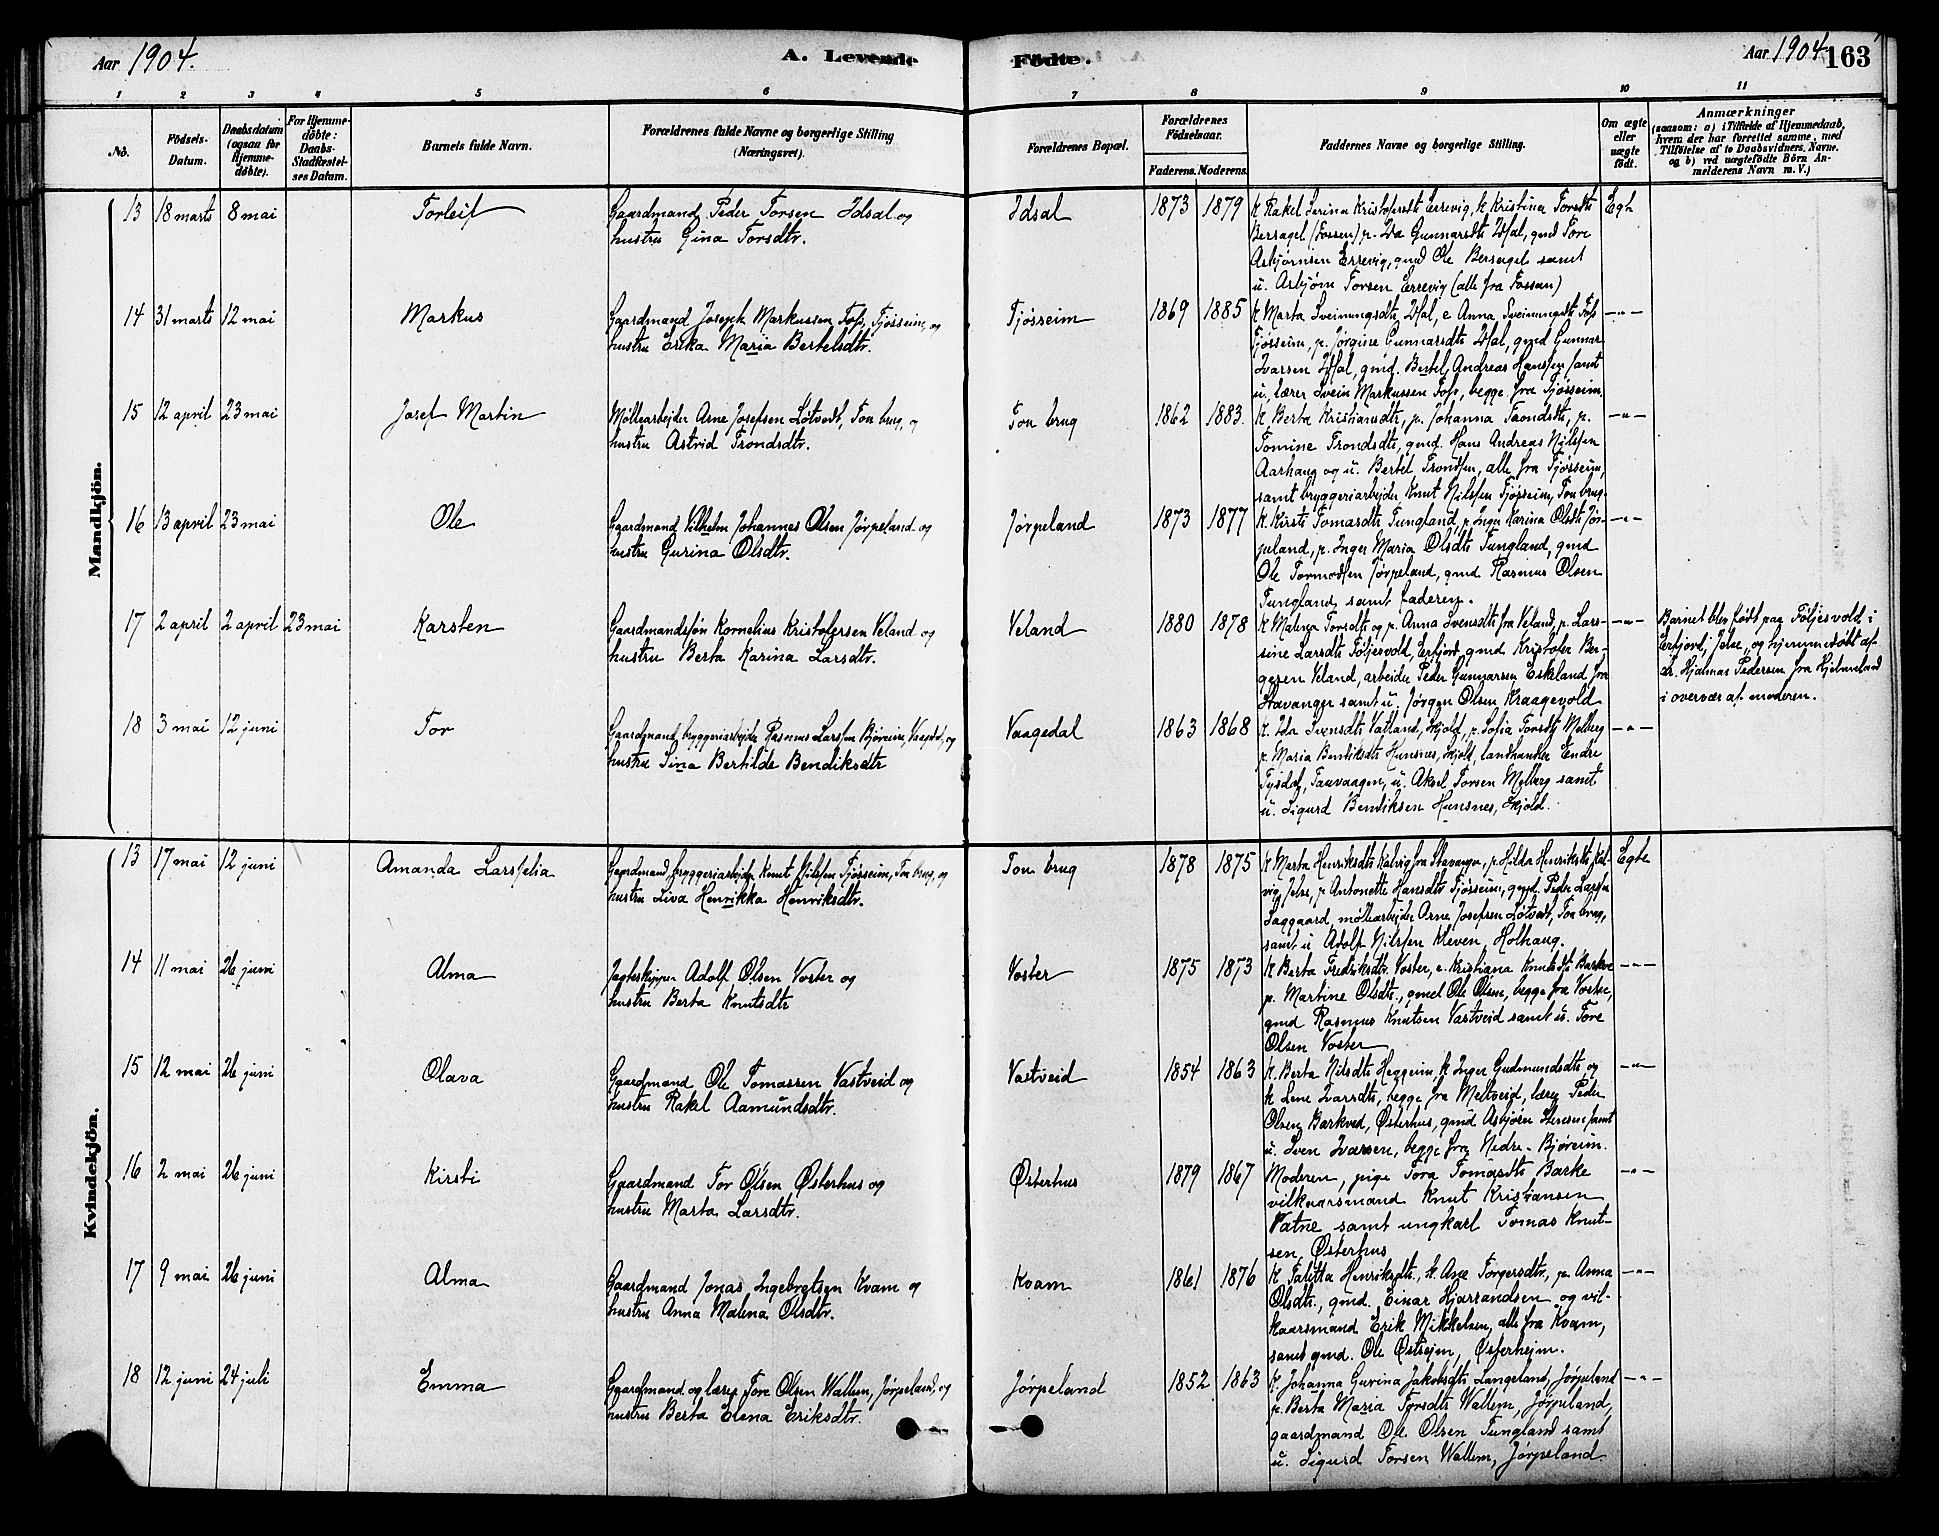 Aar 1904.
A. Levende
Födte.
Aar 1904
163
1 2 3 4 5 6 7 8 9 10 11
No.
Födsels-Datum.
Daabsdatum (ogsaa for Hjemmedöbte).
For Hjemmedöbte: Daabs-Stadfæstelses Datum.
Barnets fulde Navn.
Forældrenes fulde Navne og borgerlige Stilling (Næringsvei).
Forældrenes Bopæl.
Forældrenes Födselsaar.
Faderens. Moderens.
Faddernes Navne og borgerlige Stilling.
Om ægte eller uægte födt.
Anmærkninger
(saasom: a) i Tilfælde af Hjemmedaab, hvem der har forrettet samme, med Tilföielse af to Daabsvidners Navne, og b) ved uægtefödte Börn Anmelderens Navn m. V.)
Mandkjön.
13 18 marts 8 mai Torleif
Gaardmand Peder Torsen Idsal og
hustru Gina Torsdtr.
Idsal 1873 1879
k Rakel Serina Kristofersdt Errevig, k Kristina Torsdt
Bersagel (Fossen) p. Ida Gunnarsdt Idsal, gmd Tore
Asbjørnsen Errevig, gmd Ole Bersagel samt
u. Asbjørn Torsen Errevig (alle fra Fossan)
Egte
14 31 marts 12 mai Markus
Gaardmand Joseph Markussen Foss, Tjøsseim, og
hustru Erika Maria Bertelsdtr.
Tjøsseim 1869 1885
k Marta Sveinungsdt Idsal, e Anna Sveinungsdt Foss
Tjøsseim, p. Jørgine Gunnarsdt Idsal, gmd Gunnar
Ivarsen Idsal, gmd. Bertel Andreas Hanssen samt
u. lærer Svein Markussen Foss, begge fra Tjøsseim.
-"-
15 12 april 23 mai Josef Martin
Møllearbejder Arne Josefsen Løtvedt, Tou brug, og
hustru Astrid Trondsdtr.
Tou brug 1862 1883.
k. Berta Kristiansdt, p. Johanna Trondsdt, p.
Tomine Trondsdt, gmd. Hans Andreas Nilssen
Aarhaug og u. Bertel Trondsen, alle fra Tjøsseim,
samt bryggeriarbejder Knut Nilssen Tjøsseim, Tou brug.
-"-
16 13 april 23 mai Ole
Gaardmand Vilhelm Johannes Olsen Jørpeland og
hustru Gurina Olsdtr.
Jørpeland 1873 1877
k. Kirsti Tomasdt Tungland, p. Inger Karina Olsdt Jør-
peland, p. Inger Maria Olsdt Tungland, gmd
Ole Tormodsen Jørpeland, gmd Rasmus Olsen
Tungland samt faderen.
-"-
17 2 april 2 april 23 mai Karsten
Gaardmandssøn Kornelius Kristofersen Veland og
hustru Berta Karina Larsdtr.
Veland 1880 1878
k Malena Torsdt og p. Anna Svensdt fra Veland, p. Lars-
sine Larsdt Føljesvold, Erfjord, gmd Kristofer Ber-
gesen Veland, arbeider Peder Gunnarsen Eskeland fra
Stavanger samt u. Jørgen Olsen Kraagevold
-"-
Barnet blev født paa Føljesvold i
Erfjord, Jelse, og hjemmedøbt af
dr. Hjalmar Pedersen fra Hjelmeland
i overvær af moderen.
18 3 mai 12 juni Tor
Gaardmand, bryggeriarbejder Rasmus Larssen Bjøreim, Vaagedal, og
hustru Sina Bertilde Bendiksdtr
Vaagedal 1863 1868
k. Ida Svensdt Vatland, Skjold, p. Sofia Torsdt Melberg
p. Maria Bendiksdt Hunsnes, Skjold, landhandler Endre
Tysdal, Tauvaagen, u. Aksel Torsen Melberg samt
u. Sigurd Bendiksen Hunsnes, Skjold.
-"-
Kvindekjön.
13 17 mai 12 juni Amanda Larsselia
Gaardmand, bryggeriarbejder Knut Nilssen Tjøsseim, Tou brug, og
hustru Liva Henrikka Henriksdtr.
Tou brug 1878 1875
k Marta Henriksdt Kalvig fra Stavanger, p. Hilda Henriksdt Kal-
vig, Jelse, p Antonette Hansdtr Tjøsseim, gmd. Peder Larssen
Saggaard, møllearbejder Arne Josefsen Løtvedt, Tou brug,
samt u Adolf Nilssen Kleven, Holhaug.
Egte
14 11 mai 26 juni Alma
Jagteskipper Adolf Olsen Voster og
hustru Berta Knutsdtr
Voster 1875 1873
k Berta Fredriksdtr. Voster, e. Kristiana Knutsdt Barkve
p. Martine Olsdt, gmd Ole Olsen, begge fra Voster,
gmd Rasmus Knutsen Vastveid samt u. Tore
Olsen Voster
-"-
15 12 mai 26 juni Olava
Gaardmand Ole Tomassen Vastveid og
hustru Rakel Aamundsdtr.
Vastveid 1854 1863
k Berta Nilsdt Heggeim, k Inger Gudmundsdt og
k Lene Ivarsdt, begge fra Meltveid, lærer Peder
Olsen Barkved, Østerhus, gmd Asbjørn samt
u. Sven Ivarsen, begge fra Nedre-Bjøreim.
-"-
16 2 mai 26 juni Kirsti
Gaardmand Tor Olsen Østerhus og
hustru Marta Larsdtr.
Østerhus 1879 1867
Moderen, pige Tora Tomasdt Barke
vilkaarsmand Knut Kristiansen
Vatne samt ungkarl Tomas Knut-
sen, Østerhus
-"-
17 9 mai 26 juni Alma
Gaardmand Jonas Ingebretsen Kvam og
hustru Anna Malena Olsdtr.
Kvam 1861 1876
k Talitta Henriksdt., k. Ane Torgersdtr., p. Anna
Olsdt., gmd. Einar Hjarrandsen og vil-
kaarsmand Erik Mikkelsen, alle fra Kvam,
samt gmd. Ole Østreim, Østerheim.
-"-
18 12 juni 24 juli Emma
Gaardmand og lærer Tore Olsen Wallem, Jørpeland, og
hustru Berta Elena Eriksdtr.
Jørpeland 1852 1863
k. Johanna Gurina Jakobsdt Langeland, Jørpeland
p. Berta Maria Torsdt Wallem, Jørpeland,
gaardmand Ole Olsen Tungland samt
u. Sigurd Torsen Wallem, Jørpeland
-"-